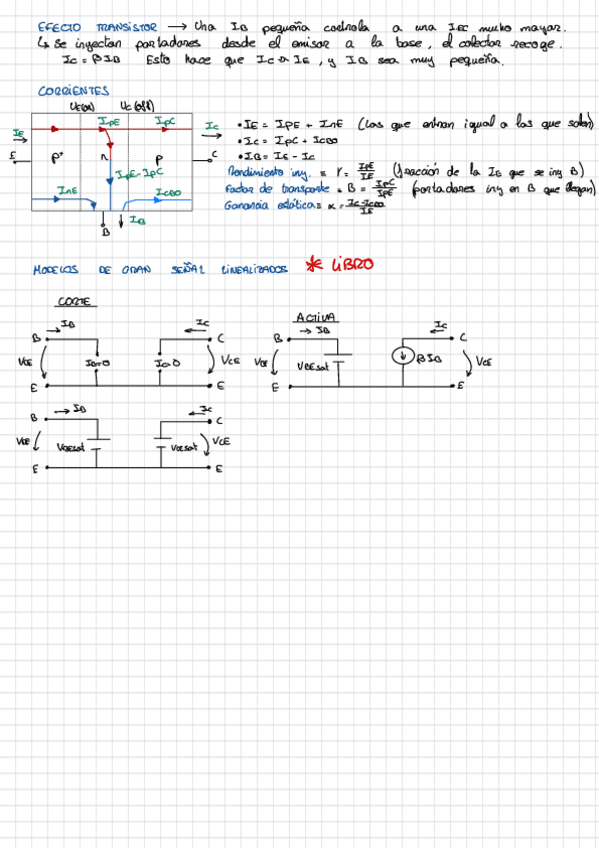 EFECTO TRANSISTOR → Una IB pequeña controla a una IEC mucho mayor.
↳ Se inyectan portadores desde el emisor a la base, el colector recoge.
IC = βIB Esto hace que IC ≈ IE, y IB sea muy pequeña.
CORRIENTES
UE(on) UC(off)
IE IpE IpC IC
E P+ n P C
IpE - IpC
InE ICBO
IB
B
• IE = IPE + InE (Las que entran igual a las que salen)
• IC = IpC + ICBO
• IB = IE - IC
Rendimiento iny. = γ = IpE/IE (fracción de la IE que se iny B)
Factor de transporte = B = IpC/IPE (portadores iny en B que llegan)
Ganancia estática = α = IC-ICBO/IE
MODELOS DE GRAN SEÑAL LINEALIZADOS * LIBRO
CORTE
B → IB IC C
VBE IB=0 IC=0 VCE
E E
ACTIVA
B → IB IC C
VBE VBEsat βIB VCE
E E
B → IB IC C
VBE VBEsat VCEsat VCE
E E